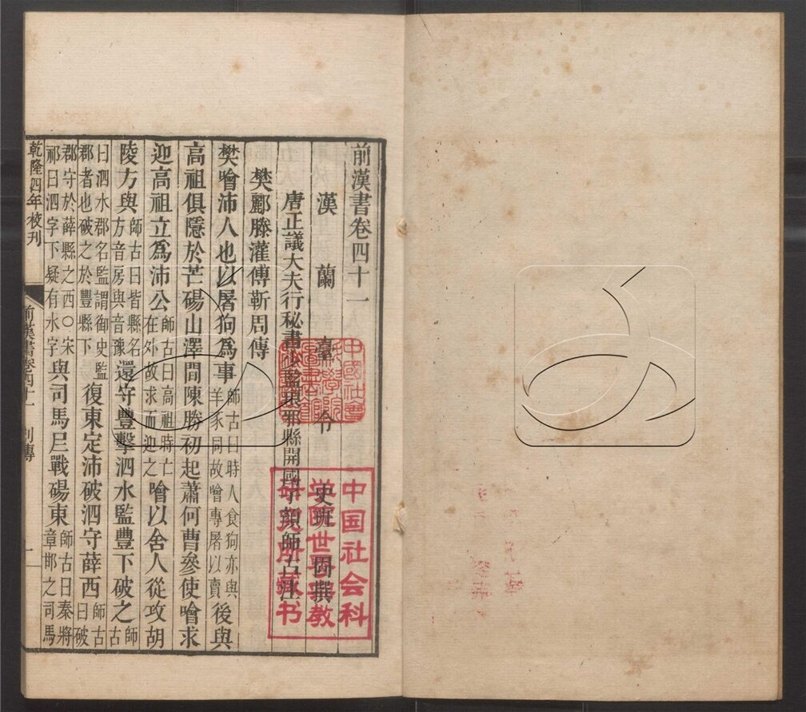 前漢書卷四十一
漢蘭臺令史班固撰
唐正議大夫行秘書少監琅邪縣開國子顏師古注
樊酈滕灌傅靳周傳
樊噲沛人也以屠狗為事師古曰時人食狗亦與羊豕同故噲專屠以賣後與
高祖俱隱於芒碭山澤間陳勝初起蕭何曹參使噲求
迎高祖立為沛公師古曰高祖時亡在外故求而迎之噲以舍人從攻胡
陵方與師古曰皆縣名方音房與音豫還守豐擊泗水監豐下破之師古
曰泗水郡名監謂御史監郡者也破之於豐縣下復東定沛破泗守薛西師古曰破
郡守於薛縣之西○宋祁曰泗字下疑有水字與司馬𡰥戰碭東師古曰秦將章邯之司馬
乾隆四年校刊
前漢書卷四十一
列傳
一
中國社會
中国社会科
学院世界宗教
研究所藏书